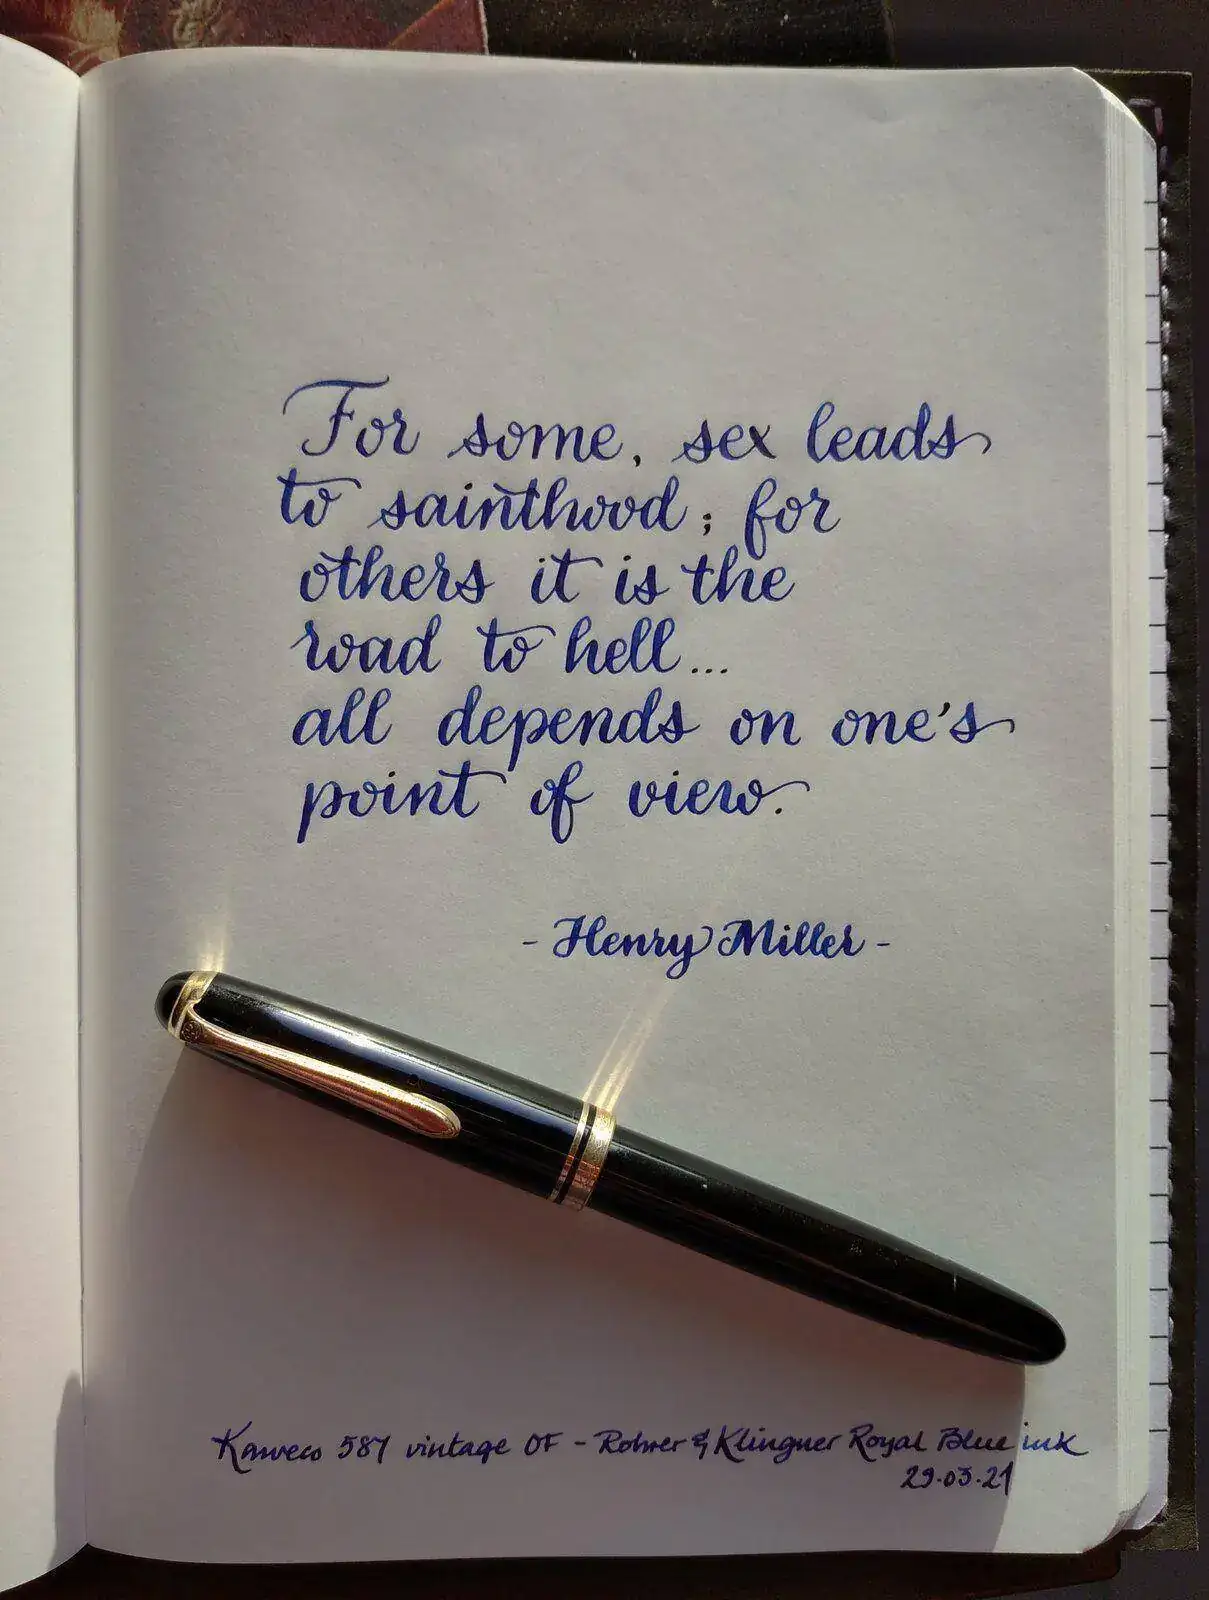 For some, sex leads
to sainthood; for
others it is the
road to hell...
all depends on one's
point of view.
- Henry Miller -
Kaweco 587 vintage OF - Rohrer & Klingner Royal Blue ink
29.03.21